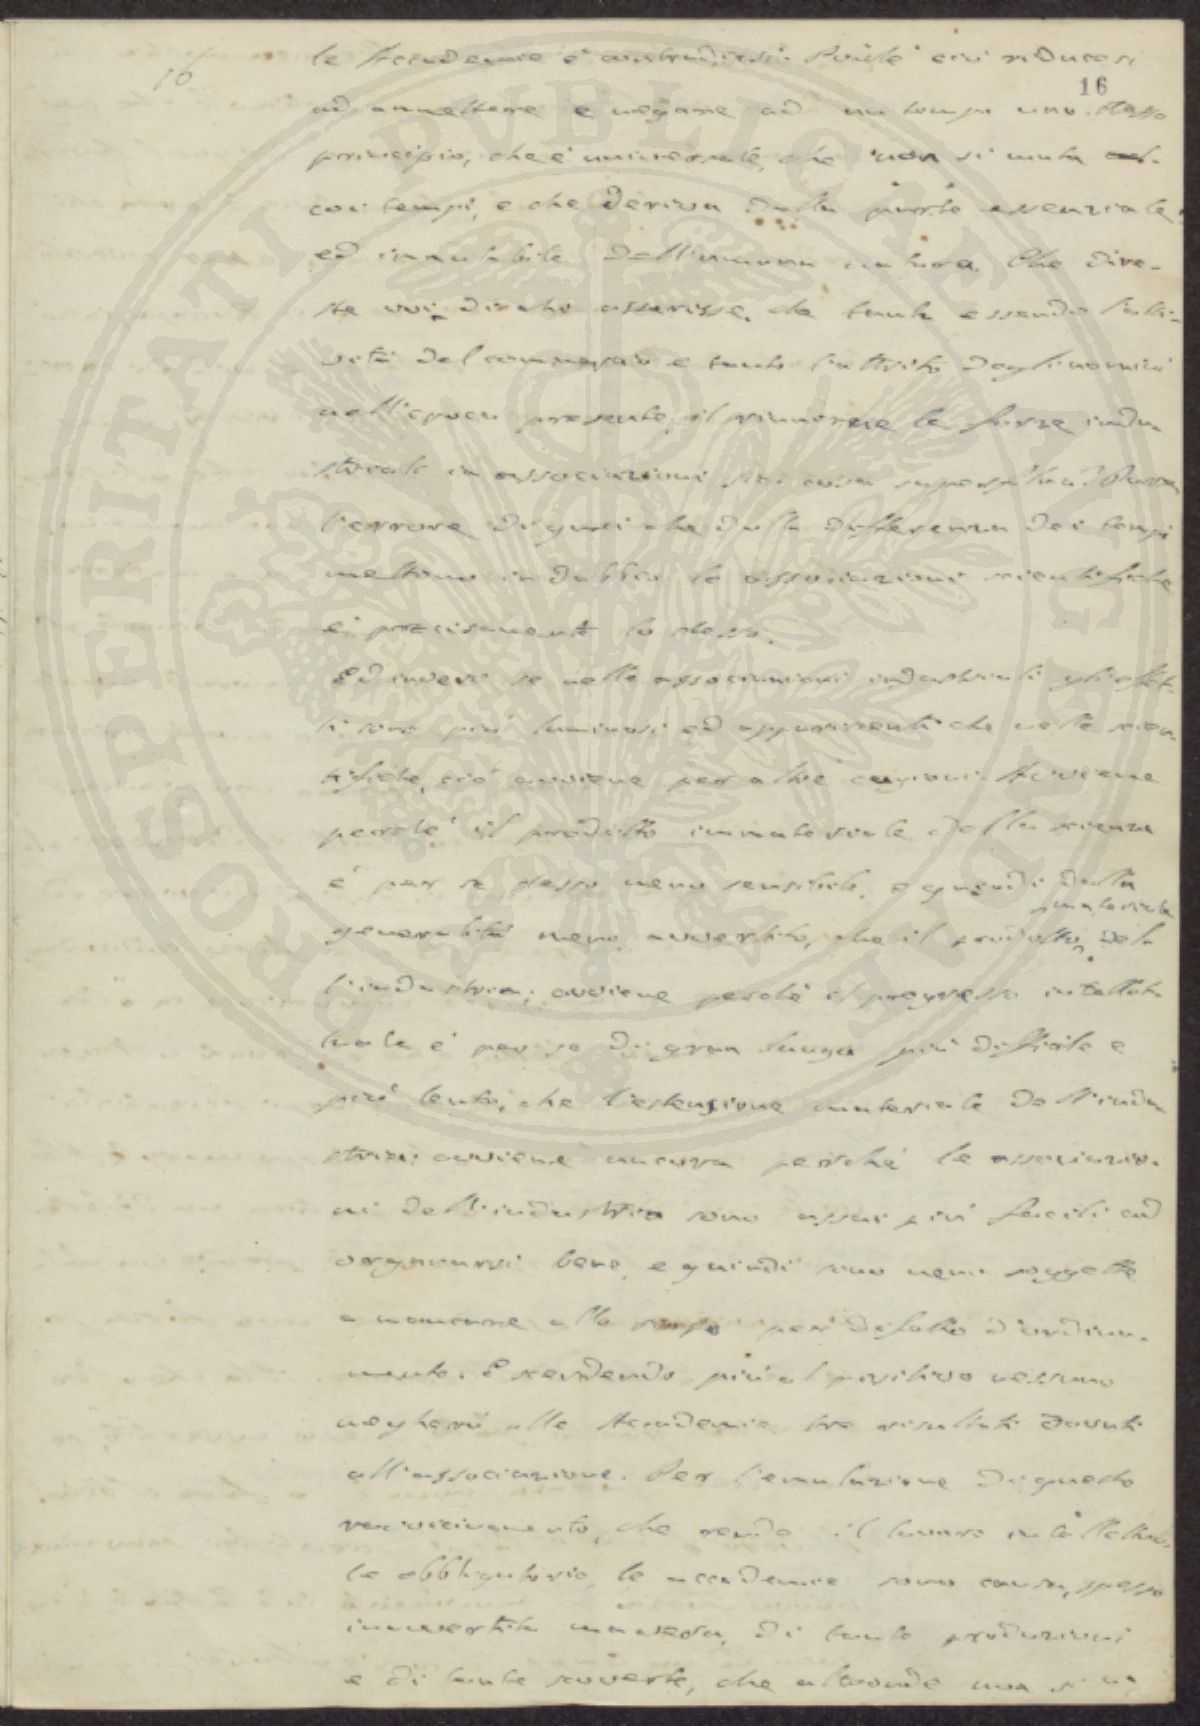 16
16
le Accademie è contradirsi. Poiché ciò riducesi
ad ammettere e negare ad un tempo uno stesso
principio, che è universale, che non si muta
coi tempi, e che deriva dalla parte essenziale
ed immutabile dell'umana natura. Che dire-
ste voi di chi asserisse, che tanta essendo l'atti-
vità del commercio e tanto l'attrito degli uomini
nell'epoca presente, il rinnovare le forze indu
striali in associazioni sia cosa superflua? Pure
l'errore di quei che dalla differenza dei tempi
mettono in dubbio le associazioni scientifiche
è precisamente lo stesso.
Ed invero se nelle associazioni industriali gli effet-
ti sono più luminosi ed appariscenti che nelle scien-
tifiche, ciò avviene per altre cagioni. Avviene
perché il prodotto immateriale della scienza
è per se stesso meno sensibile, e quindi dalla
generalità meno avvertito, che il prodotto materiale del-
l'industria; avviene perché il progresso intellet-
tuale è per se di gran lunga più difficile e
più lento, che l'estensione materiale dell'indu
stria; avviene ancora perché le associazio-
ni dell'industria sono assai più facili ad
organarsi bene, e quindi sono meno soggette
a mancare allo scopo per difetto d'ordina-
mento. E scendendo più al positivo nessuno
negherà alle Accademie tre risultati dovuti
all'associazione. Per l'emulazione di questo
ravvicinamento, che rende il lavoro intellettua-
le obbligatorio, le accademie sono causa, spesso
inavvertita, di tante produzioni
e di tante scoverte, che altronde non si
PROSPERITATI PUBLICAE AUGENDAE